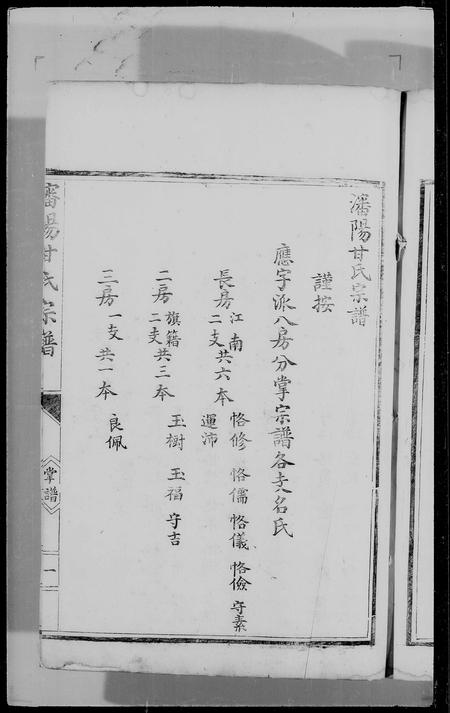 瀋陽甘氏宗譜
謹按
應字派八房分掌宗譜各支名氏
長房江南二支共六本 恪修 恪儒 恪儀 恪儉 守素 運沛
二房旗籍二支共三本 玉樹 玉福 守吉
三房一支共一本 良佩
瀋陽甘氏宗譜
掌譜
一